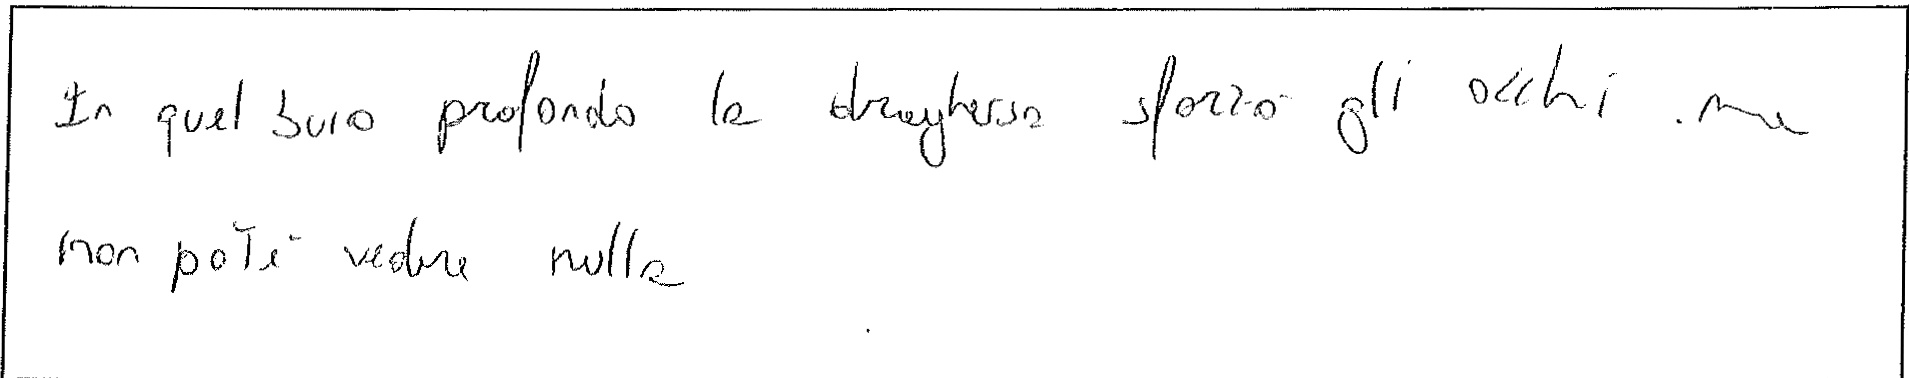 In quel buio profondo la draghessa sforzò gli occhi . ma
non poté vedere nulla